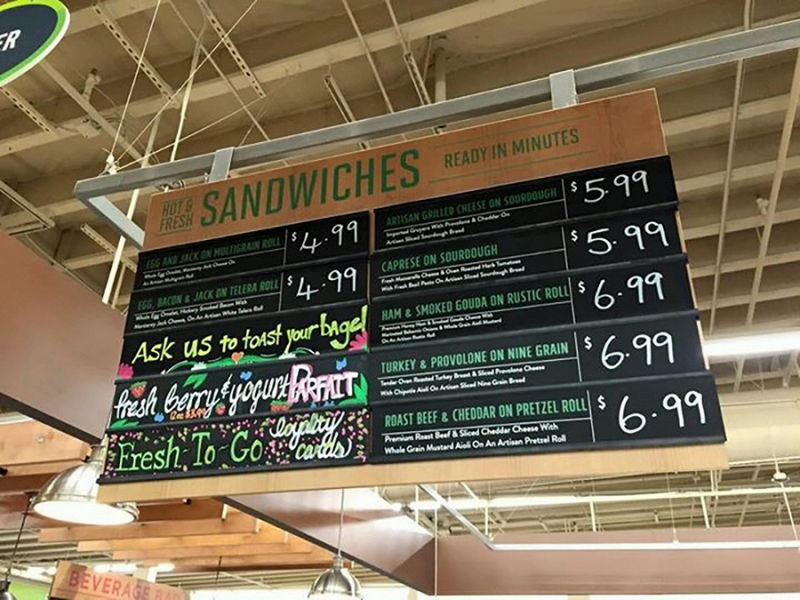 ER
HOT & FRESH SANDWICHES READY IN MINUTES
EGG AND JACK ON MULTIGRAIN ROLL $4.99
Whole Egg Omelet, Monterey Jack Cheese On
An Artisan Multigrain Roll
EGG, BACON & JACK ON TELERA ROLL $4.99
Whole Egg Omelet, Hickory Smoked Bacon With
Monterey Jack Cheese, On An Artisan White Telera Roll
Ask us to toast your bagel
fresh berry & yogurt PARFAIT
12oz $3.99
Fresh-To-Go loyalty cards
ARTISAN GRILLED CHEESE ON SOURDOUGH $5.99
Imported Gruyere With Provolone & Cheddar On
Artisan Sliced Sourdough Bread
CAPRESE ON SOURDOUGH $5.99
Fresh Mozzarella Cheese & Oven Roasted Herb Tomatoes
With Fresh Basil Pesto On Artisan Sliced Sourdough Bread
HAM & SMOKED GOUDA ON RUSTIC ROLL $6.99
Premium Honey Ham & Smoked Gouda Cheese With
Marinated Balsamic Onions & Whole Grain Aioli Mustard
On An Artisan Rustic Roll
TURKEY & PROVOLONE ON NINE GRAIN $6.99
Tender Oven Roasted Turkey Breast & Sliced Provolone Cheese
With Chipotle Aioli On Artisan Sliced Nine Grain Bread
ROAST BEEF & CHEDDAR ON PRETZEL ROLL $6.99
Premium Roast Beef & Sliced Cheddar Cheese With
Whole Grain Mustard Aioli On An Artisan Pretzel Roll
BEVERAGE BAR